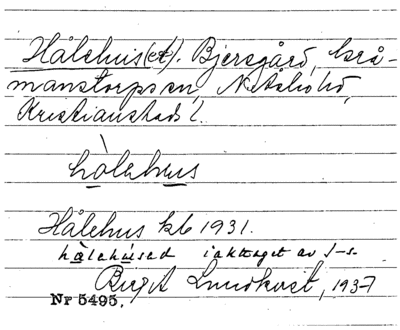 Hålehus(et). Bjersgård, Grå-
manstorps sn, N. Åsbo hd,
Kristianstads l.
hòlehus
Hålehus kb 1931.
hålehused iakttaget av I-s.
Birgit Lundkvist, 1937
Nr 5495.